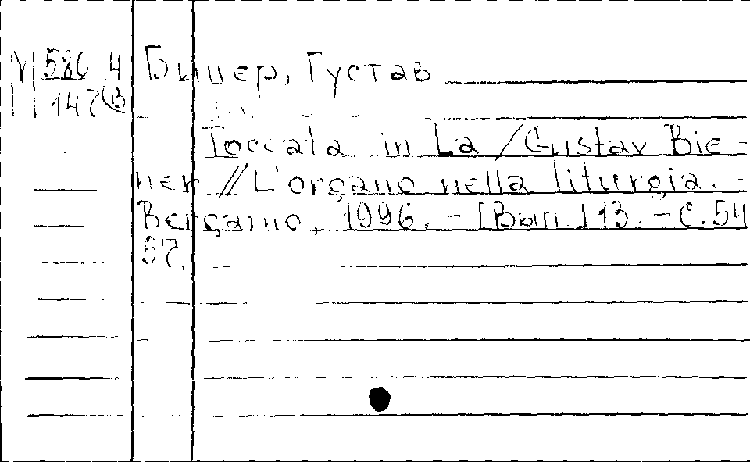 Бинер, Густав
Toccata in La / Gustav Bie-
ner // L'organo nella liturgia. -
Bergamo, 1996. - [Вып.] 13. - С. 54
57.